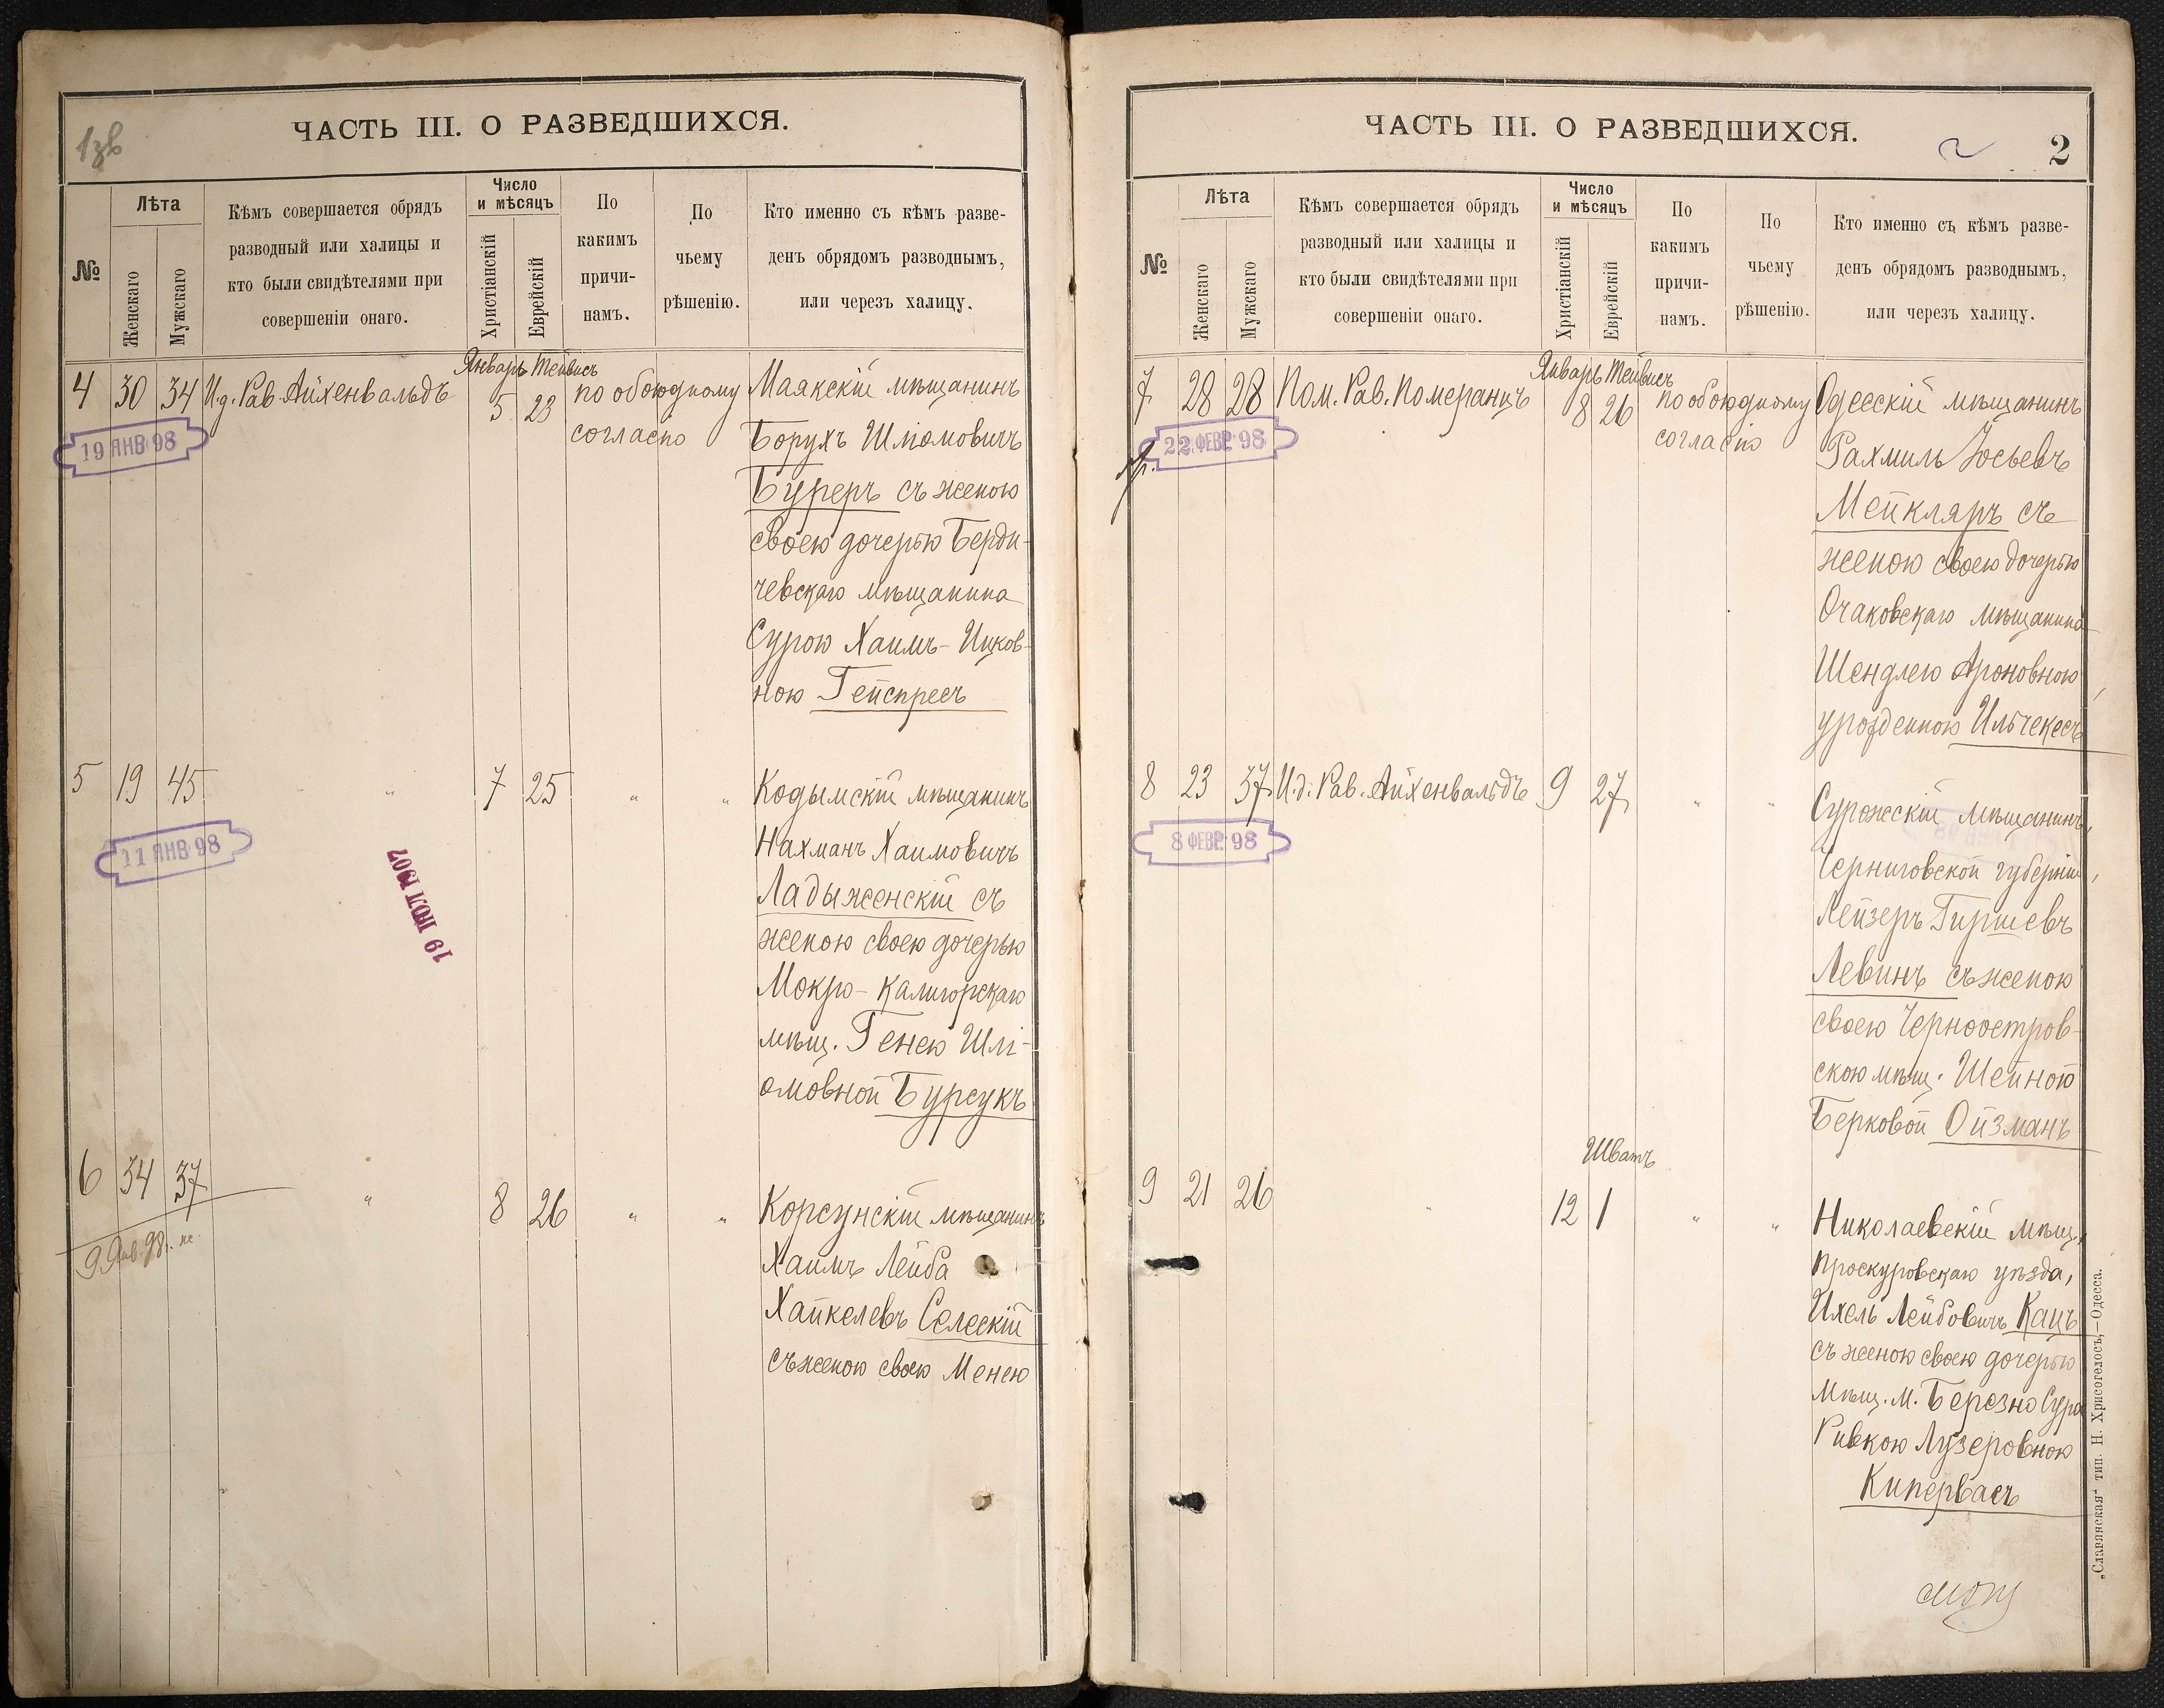 1зв
ЧАСТЬ III. О РАЗВЕДШИХСЯ.
№
Лѣта
Женскаго
Мужскаго
Кѣмъ совершается обрядъ
разводный или халицы и
кто были свидѣтелями при
совершеніи онаго.
Число
и мѣсяцъ
Христіанскій
Еврейскій
По
какимъ
причи-
намъ.
По
чьему
рѣшенію.
Кто именно съ кѣмъ разве-
денъ обрядомъ разводнымъ,
или черезъ халицу.
Январь Тейвисъ
4 30 34 И.д. Рав. Айхенвальдъ 5 23 по обоюдному
согласію
19 ЯНВ 98
Маякскій мѣщанинъ
Борухъ Шліомовичъ
Буреръ съ женою
своею дочерью Берди-
чевскаго мѣщанина
Сурою Хаимъ-Ицков-
ною Гейспресъ
5 19 45 " 7 25 " "
11 ЯНВ 98
19 ЮЛ 1907
Кодымскій мѣщанинъ
Нахманъ Хаимовичъ
Ладыженскій съ
женою своею дочерью
Мокро-Калигорскаго
мѣщ. Генею Шлі-
омовной Бурсукъ
6 34 37 " 8 26 " "
9 Янв. 98.
Корсунскій мѣщанинъ
Хаимъ Лейба
Хайкелевъ Селескій
съ женою своею Менею
ЧАСТЬ III. О РАЗВЕДШИХСЯ.
2
№
Лѣта
Женскаго
Мужскаго
Кѣмъ совершается обрядъ
разводный или халицы и
кто были свидѣтелями при
совершеніи онаго.
Число
и мѣсяцъ
Христіанскій
Еврейскій
По
какимъ
причи-
намъ.
По
чьему
рѣшенію.
Кто именно съ кѣмъ разве-
денъ обрядомъ разводнымъ,
или черезъ халицу.
Январь Тейвисъ
7 28 28 Пом. Рав. Померанцъ 8 26 по обоюдному
согласію
22 ФЕВР 98
Одесскій мѣщанинъ
Рахмиль Іосьевъ
Мейкляръ съ
женою своею дочерью
Очаковскаго мѣщанина
Шендлею Ароновною,
урожденною Ильчекесъ
8 23 37 И.д. Рав. Айхенвальдъ 9 27 " "
8 ФЕВР 98
Суражскій мѣщанинъ,
Черниговской губерніи,
Лейзеръ Гиршевъ
Левинъ съ женою
своею Черноостров-
скою мѣщ. Шейной
Берковой Ойзманъ
Шватъ
9 21 26 " 12 1 " "
Николаевскій мѣщ.,
Проскуровскаго уѣзда,
Ихель Лейбовичъ Кацъ
съ женою своею дочерью
мѣщ. м. Березно Сура
Ривкою Лузеровною
Кипервасъ
„Славянская“ тип. Н. Хрисогелосъ,—Одесса.